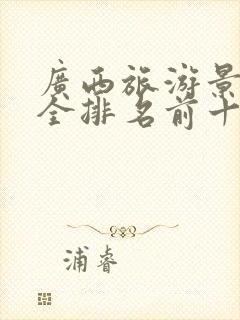 廣西旅游景
全排名前十
浦睿